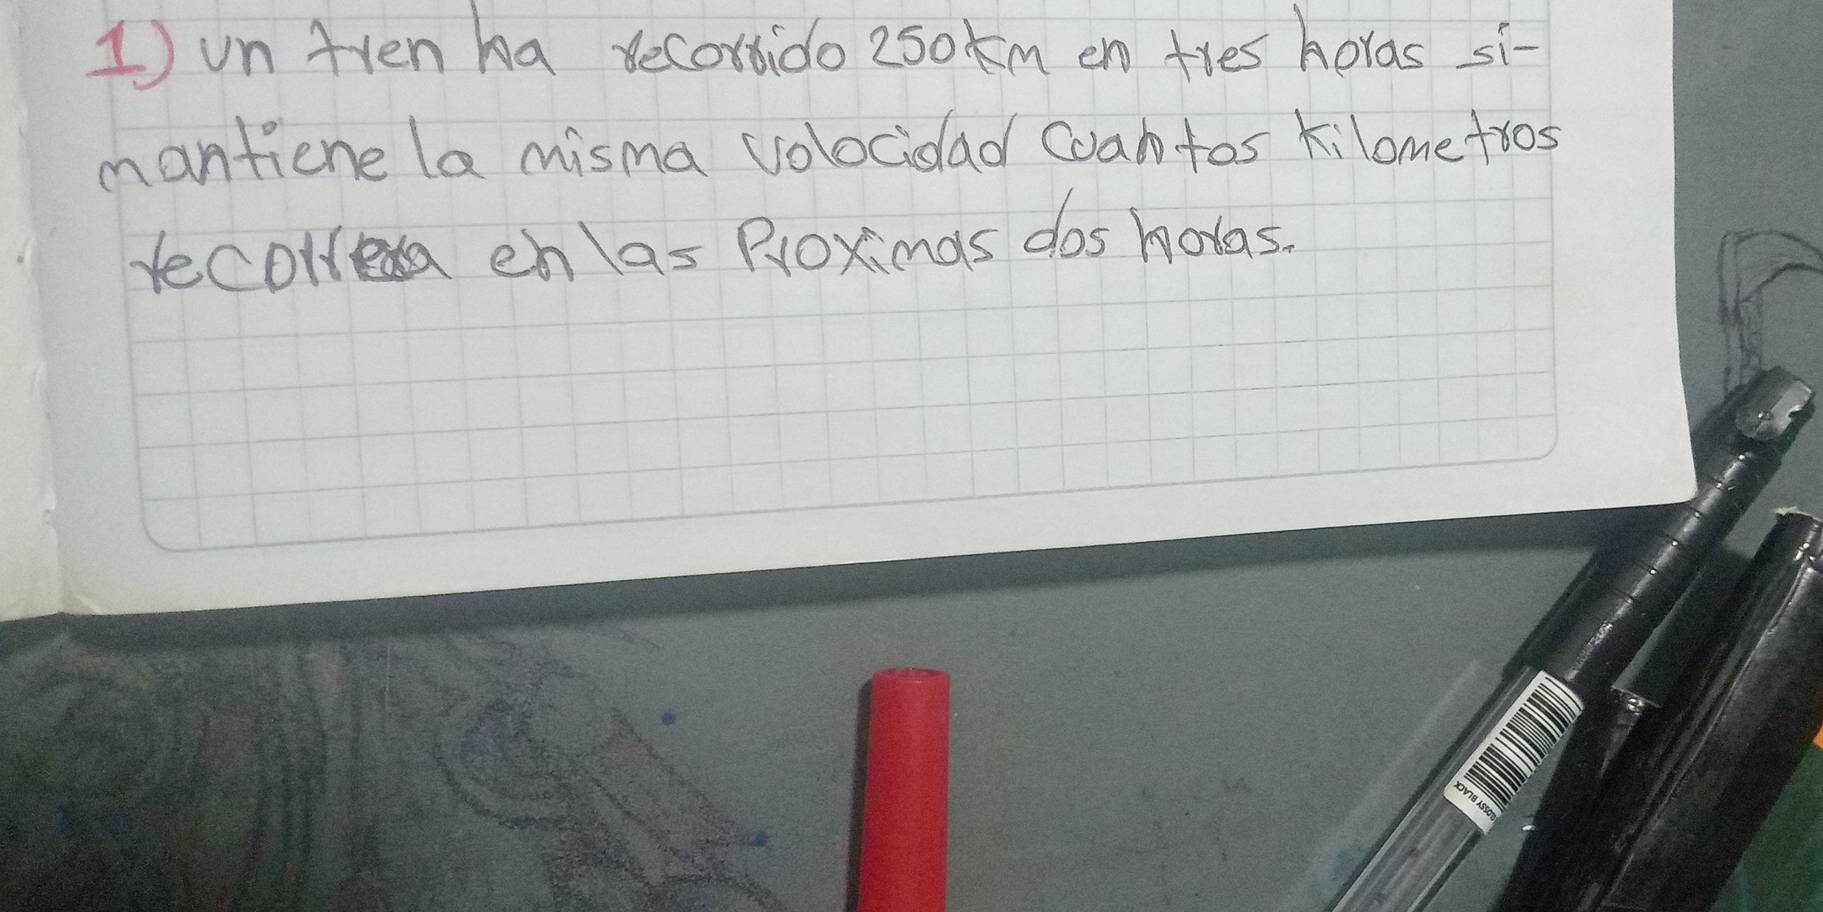 1) un tren ha recorrido 250km en tres horas si-
mantiene la misma volocidad cuantos kilometros
recorrera en las Proximas dos horas.
GLOSSY BLACK